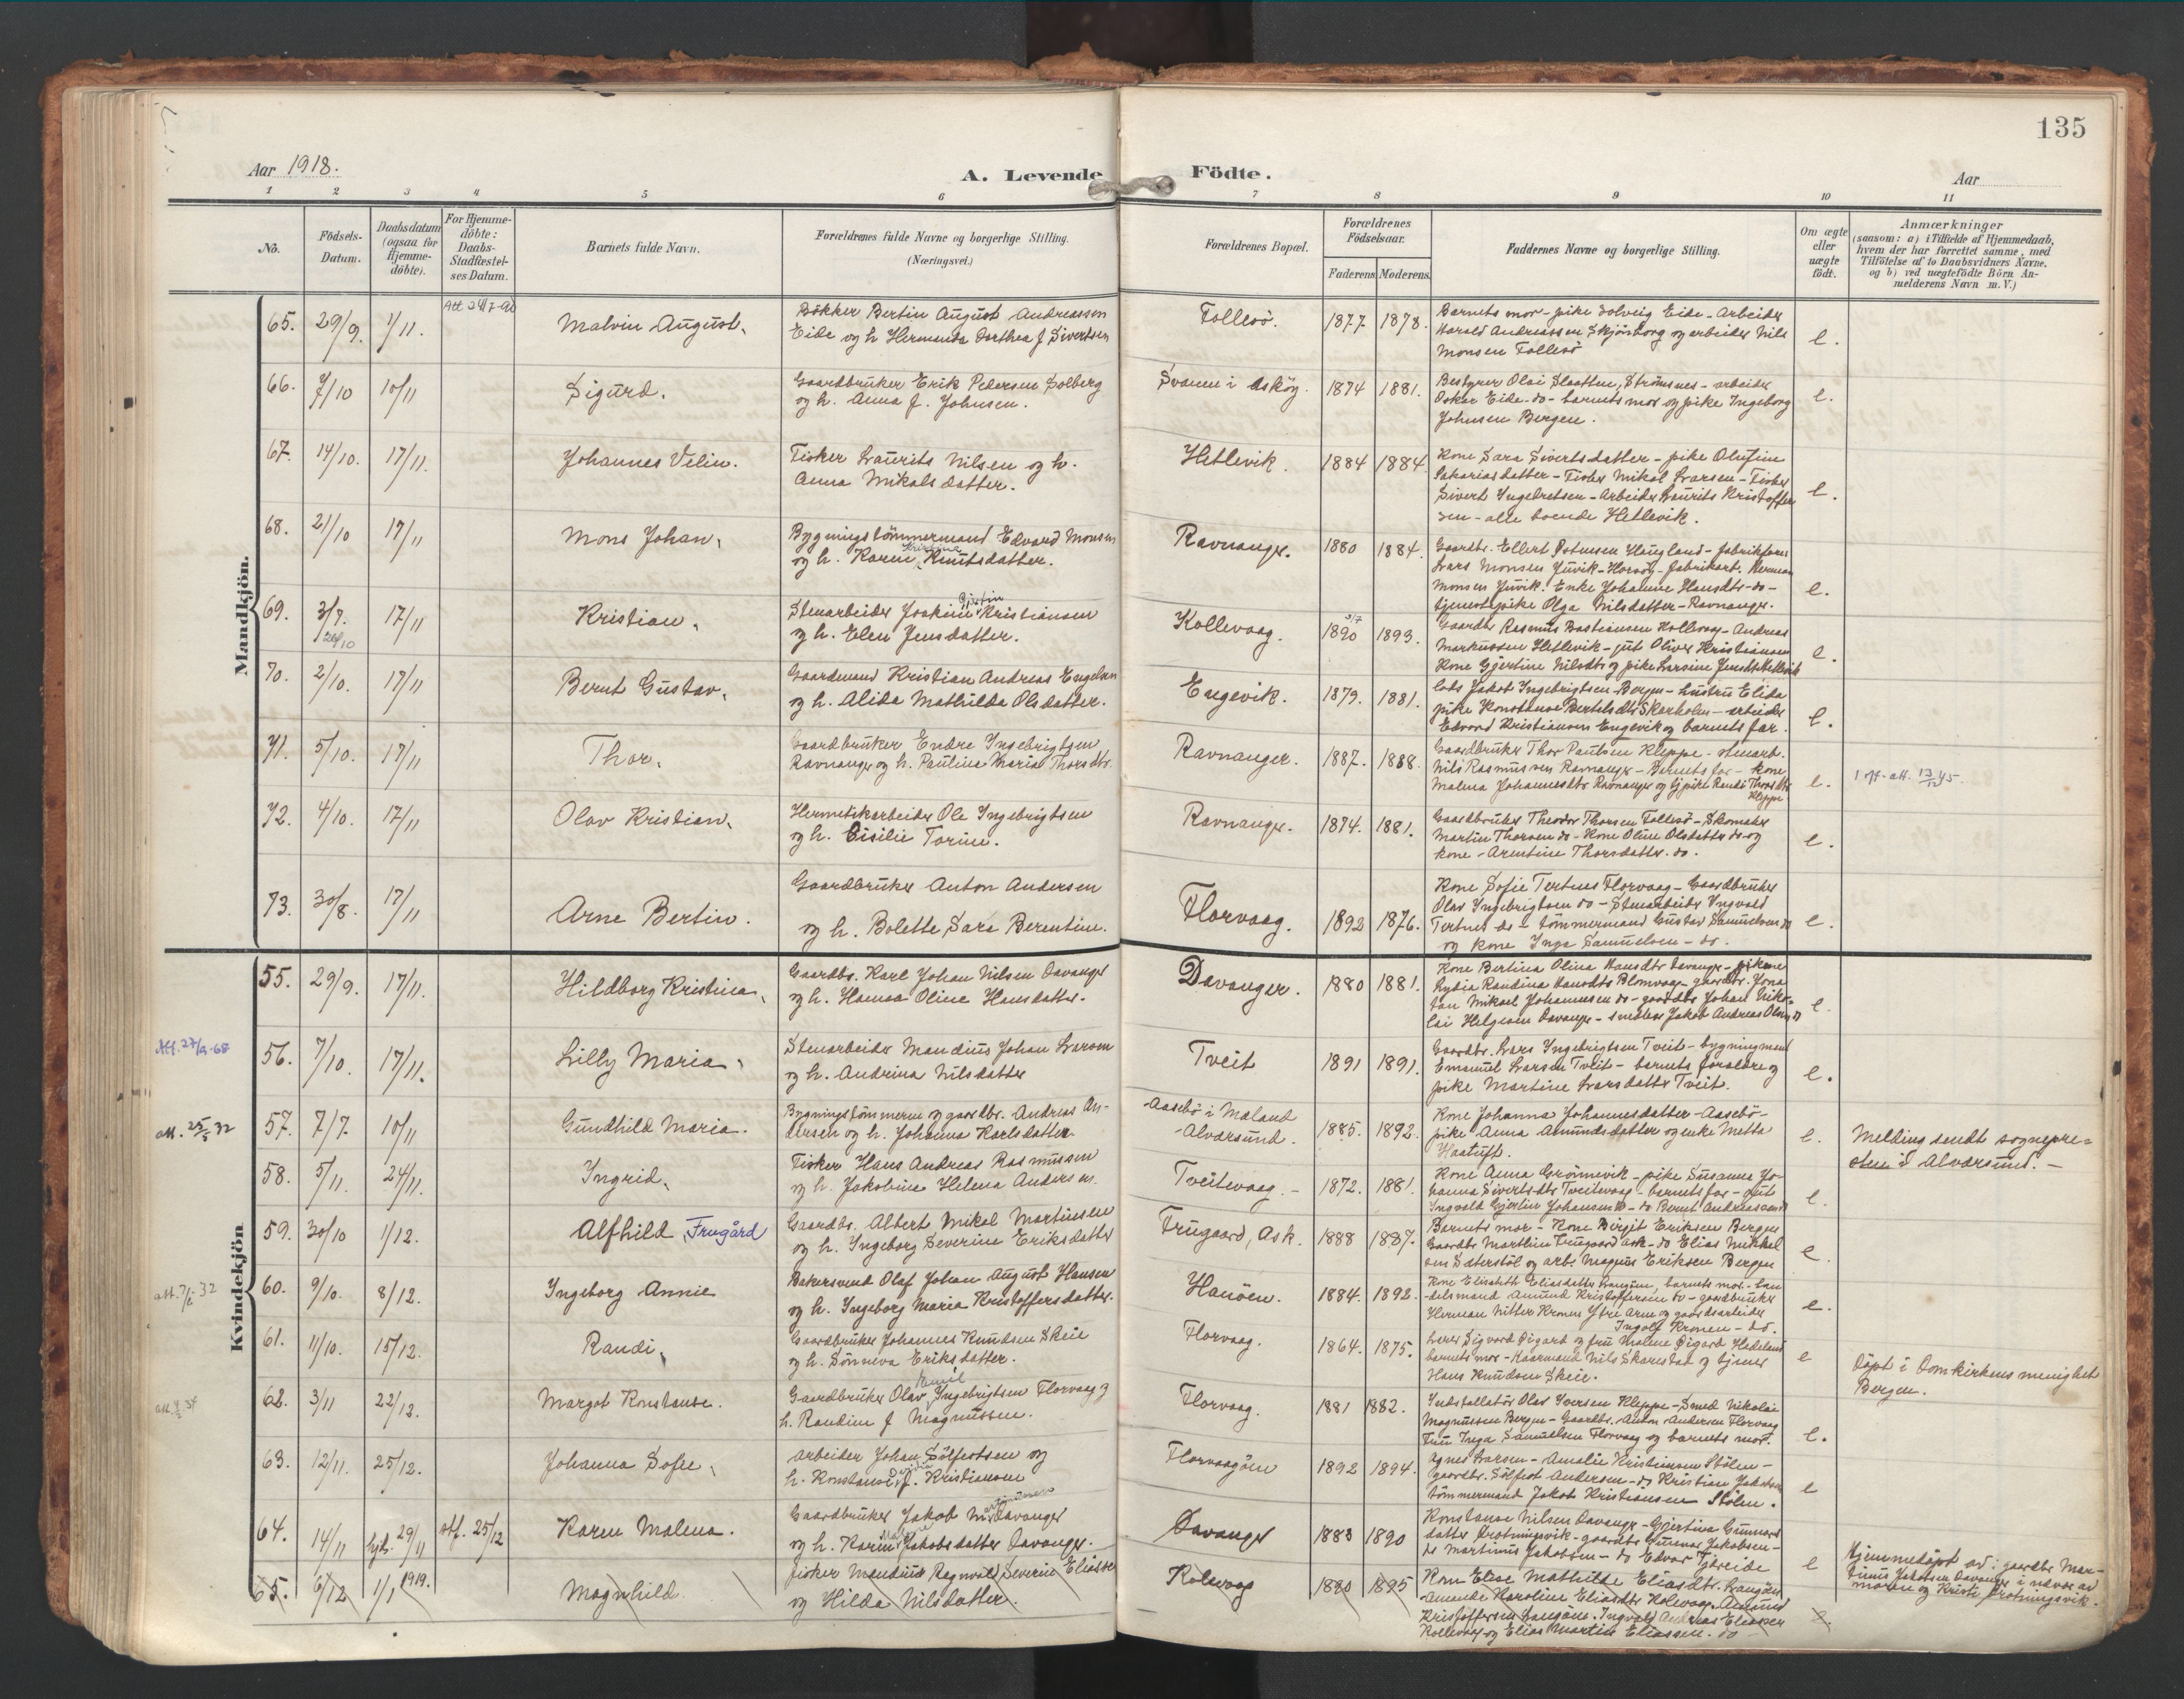 135
Aar 1918.
A. Levende Födte.
Aar
1 2 3 4 5 6 7 8 9 10 11
No.
Födsels-
Datum.
Daabsdatum
(ogsaa for
Hjemme-
döbte).
For Hjemme-
döbte:
Daabs-
Stadfæstel-
ses Datum.
Barnets fulde Navn.
Forældrenes fulde Navne og borgerlige Stilling.
(Næringsvei.)
Forældrenes Bopæl.
Forældrenes
Födselsaar.
Faderens Moderens.
Faddernes Navne og borgerlige Stilling.
Om ægte
eller
uægte
födt.
Anmærkninger
(saasom: a) i Tilfælde af Hjemmedaab,
hvem der har forrettet samme, med
Tilföielse af to Daabsvidners Navne.
og b) ved uægtefödte Börn An-
melderens Navn m. V.)
Mandkjön.
65. 29/9. 1/11. Malvin August.
Bökker Bertin August Andreassen
Eide og h Hermanda Dorthea J Sivertsen
Follesö. 1877. 1878.
Barnets mor - pike Solveig Eide - Arbeider
Harald Andreassen Skjönborg og arbeider Nils
Monsen Follesö
e.
66. 7/10 10/11 Sigurd.
Gaardbruker Erik Pedersen Solberg
og h. Anna J. Johnsen.
Svanen i Asköy. 1874 1881.
Bestyrer Olai Slaatten, Strömsnes - arbeider
Oskar Eide - do - barnets mor og pike Ingeborg
Johnsen Bergen.
e.
67. 14/10. 17/11. Johannes Velin.
Fisker Laurits Nilsen og h.
Anna Mikalsdatter.
Hetlevik. 1884 1884.
Kone Sara Sivertsdatter - pike Olufine
Sakariasdatter - Fisker Mikal Larsen - Fisker
Sivert Ingebretsen - Arbeider Laurits Kristoffer
sen - alle boende Hetlevik.
e.
68. 21/10 17/11 Mons Johan.
Bygningstömmermand Edvard Monsen
og h. Karen Knutsdatter.
Ravnanger. 1880 1884.
Gaardbr. Ellert Haugland - fabrikform
Lars Monsen Juvik - Horsöy - fabrikarb. Herman
Monsen Juvik. Enke Johanne Hansdtr - do -
tjenestepike Olga Nilsdatter - Ravnanger.
e.
69. 3/7. 17/11 Kristian.
Stenarbeider Joakim Kristiansen
og h. Elen Jensdatter.
Kollevaag. 1890 1893.
Gaardbr Rasmus Bastiansen Kollevaag - Andreas
Markussen Hetlevik - gut Oliver Kristiansen
Kone Gjertine Nilsdtr og pike Larsine Jensdtr Hetlevik
e.
70. 2/10. 17/11 Bernt Gustav.
Gaardmand Kristian Andreas Engelsen
og h. Alida Mathilda Olsdatter.
Engevik. 1879. 1881.
Lods Jakob Ingebrigtsen Bergen - hustru Elida
pike Konstanse Bertelsdtr Skarholm - arbeider
Edvard Kristiansen Engevik og barnets far.
e.
71. 5/10. 17/11 Thor.
Gaardbruker Endre Ingebrigtsen
Ravnanger og h. Pauline Maria Thorsdtr.
Ravnanger. 1887. 1888.
Gaardbruker Thor Paulsen Kleppe - stenarb.
Nils Rasmussen Ravnanger - Barnets far - kone
Malena Johannesdtr Ravnanger og tj pike Randi Thorsdtr
Kleppe
e.
72. 4/10. 17/11 Olav Kristian.
Hermetikarbeider Ole Ingebrigtsen
og h. Cisilie Torine.
Ravnanger. 1874. 1881.
Gaardbruker Theodor Thorsen Follesö - Skomaker
Martin Thorsen do - Kone Oline Olsdatter do og
kone - Arentine Thorsdatter. do.
e.
73. 30/8. 17/11 Arne Bertin.
Gaardbruker Anton Andersen
og h. Bolette Sara Berentine.
Florvaag. 1892 1876.
Kone Sofie Tertnes Florvaag - Gaardbruker
Olav Ingebrigtsen do - Stenarbeider Ingvald
Tertnes do - tömmermand Gustav Samuelsen do
og kone Inga Samuelsen - do.
e.
Kvindekjön
55. 29/9. 17/11. Hildborg Kristina.
Gaardbr. Karl Johan Nilsen Davanger
og h. Hanna Oline Hansdatter.
Davanger. 1880 1881.
Kone Bertina Olina Hansdtr Davanger - pikene
Lydia Randina Blomvaag - gaardbr. Jona
tan Mikael Johannessen do - gaardbr Johan Niko-
lai Helgesen Davanger - Jakob Andreas Olsen
e
56. 7/10. 17/11. Lilly Maria.
Stenarbeider Mandius Johan Larsen
og h. Andrina Nilsdatter
Tveit 1891 1891.
Gaardbr. Lars Ingebrigtsen Tveit - bygningsmand
Emanuel Larsen Tveit - barnets forældre og
pike Martine Larsdatter Tveit.
e.
att. 25/5 32
57. 7/7. 10/11 Gundhild Maria.
Bygningstömmerm og gaardbr. Andreas An-
dersen og h. Johanna Karlsdatter
Aasebö i Maland
Alversund. 1885. 1892.
Kone Johanna Johannesdatter - Aasebö -
pike Anna Amundsdatter og enke Metta
Haatuft.
e.
Melding sendt sognepre-
sten i Alversund. -
58. 5/11. 24/11. Ingrid.
Fisker Hans Andreas Rasmussen
og h. Jakobine Helena Andersen.
Tveitevaag. 1872. 1881.
Kone Anna Grönnevik - pike Susanna Jo-
hanna Sivertsdtr Tveitevaag - barnets far - gut
Ingvald Gjertin Johansen do - do Bernt Andreassen do
e
59. 30/10 1/12. Alfhild Frugård
Gaardbr. Albert Mikal Martinsen
og h. Ingeborg Severine Eriksdatter
Frugaard, Ask. 1888 1887.
Barnets mor - Kone Birgit Eriksen Bergen
Gaardbr Marthin Frugaard Ask - do Elias Mikkel
sen Sæterstöl og arb. Magnus Eriksen Bergen
e
60. 9/10. 8/12. Ingeborg Annie
Bakersvend Olaf Johan August Hansen
og h. Ingeborg Maria Kristoffersdatter.
Hanöen. 1884. 1892.
Kone Elisabeth Eliasdatter Langöen, barnets mor - han
delsmand Amund Kristoffersen do - gaardbruker
Herman Nitter Kronen Ytre Arne og gaardsarbeider
Ingolf Kronen - do.
e.
61. 11/10. 15/12. Randi.
Gaardbruker Johannes Knudsen Skeie
og h. Sönneva Eriksdatter.
Florvaag. 1864. 1875.
Lærer Sigvard Digard og fru Malene Digard
barnets mor - Nils Skarestad og tjener
Hans Knudsen Skeie.
e
Döpt i Domkirkens menighet
Bergen.
62. 3/11 22/12. Margot Konstanse.
Gaardbruker Olav Emil Ingebrigtsen Florvaag og
h. Randine J Magnussen.
Florvaag. 1881 1882.
Installatör Olav Iversen Kleppe - Smed Nikolai
Magnussen Bergen - Gaardbr. Anton Andersen Florvaag
Fru Inga Samuelsen Florvaag og barnets mor.
e.
63. 12/11. 25/12. Johanna Sofie.
Arbeider Johan Sölfestsen og
h. Konstanse J. Kristiansen
Florvaagöen 1892 1894.
Agnes Larsen - Amalie Kristiansen Stölen -
gaardbr. Sölfest Andersen - do Kristian Jakobsen
tömmermand Jakob Kristiansen Stölen.
e
64. 14/11 hjd. 29/11 stf. 25/12 Karen Malena.
Gaardbruker Jakob Davanger
og h. Karen Malene Jakobsdatter Davanger.
Davanger 1883 1890
Konstanse Nilsen Davanger - Gjertine Gunnars
datter Drotningsvik - gaardbr Gunnar Jakobsen -
do Martinus Jakobsen - do Edvar Tjöreide
e
Hjemmedöpt av gaardbr Mar-
tinus Jakobsen Davanger i nærvær av
moren og Kristi Drotningsvik.
65. 6/12 1/1 1919. Magnhild.
Fisker Mandius Ragnvald Severin Eliassen
og Hilda Nilsdatter.
Kolevaag 1890 1895
Kone Elise Mathilde Eliasdtr. Langöen
Amanda Karoline Eliasdtr Kolevaag. Amund
Kristoffersen Langöen. Ingvald Andreas Eliassen
Kollevaag og Elias Martin Eliassen. do
e.